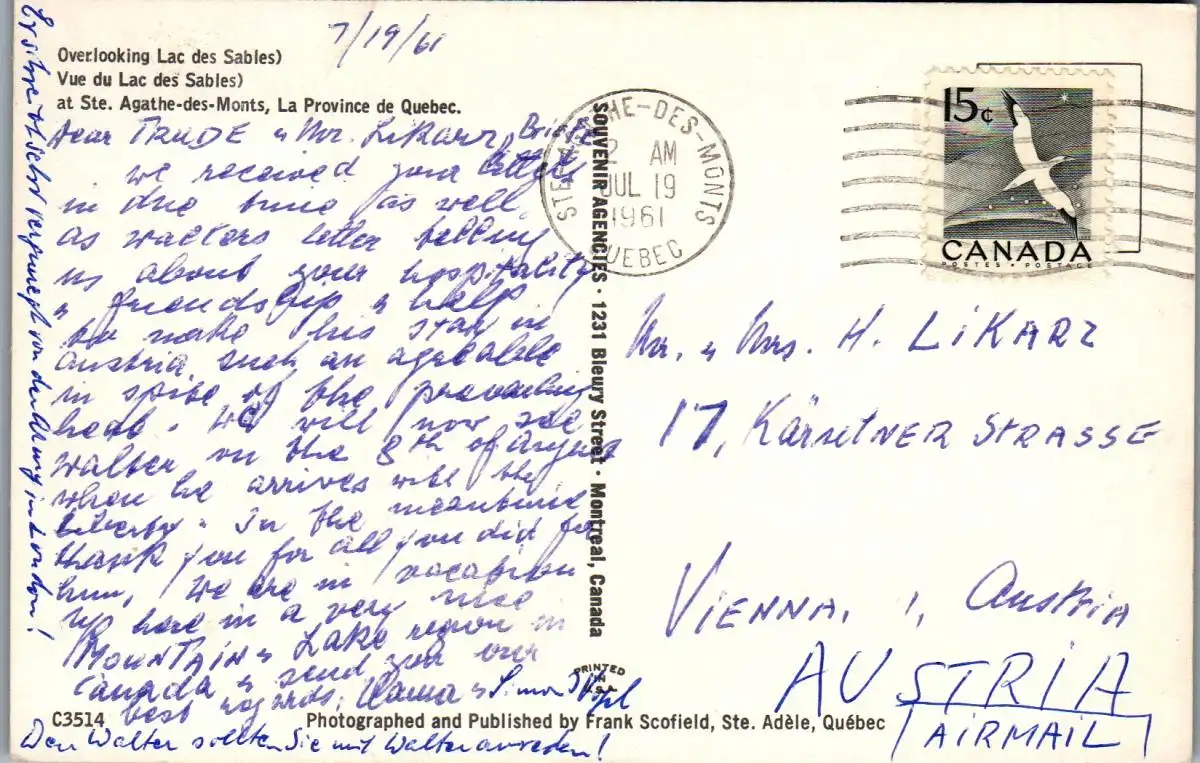 7/19/61
Overlooking Lac des Sables)
Vue du Lac des Sables)
at Ste. Agathe-des-Monts, La Province de Quebec.
Dear TRUDE & Mr. LiKarz,
we received your
in due time as well
as walters letter telling
us about your hospitality
& friendship & help
to make his stay in
Austria such an agreable
in spite of the prevailing
heat. We will now see
Walter on the 8th of August
when he arrives with the
liberty. In the meantime
thank you for all you did for
him, We are in vacation
up here in a very nice
MOUNTAIN & Lake region in
Canada & send you our
best regards, & Simon
Er ist sehr vergnuegt von London!
Den Walter sollten Sie mit Walter anreden!
C3514
Photographed and Published by Frank Scofield, Ste. Adèle, Québec
SOUVENIR AGENCIES · 1231 Bleury Street · Montreal, Canada
PRINTED
IN
U.S.A.
STE AGATHE-DES-MONTS
AM
JUL 19
1961
QUEBEC
15¢
CANADA
POSTES · POSTAGE
Mr. & Mrs. H. LiKARZ
17, KärntNER STRASSE
VIENNA, 1, Austria
AUSTRIA
AIRMAIL